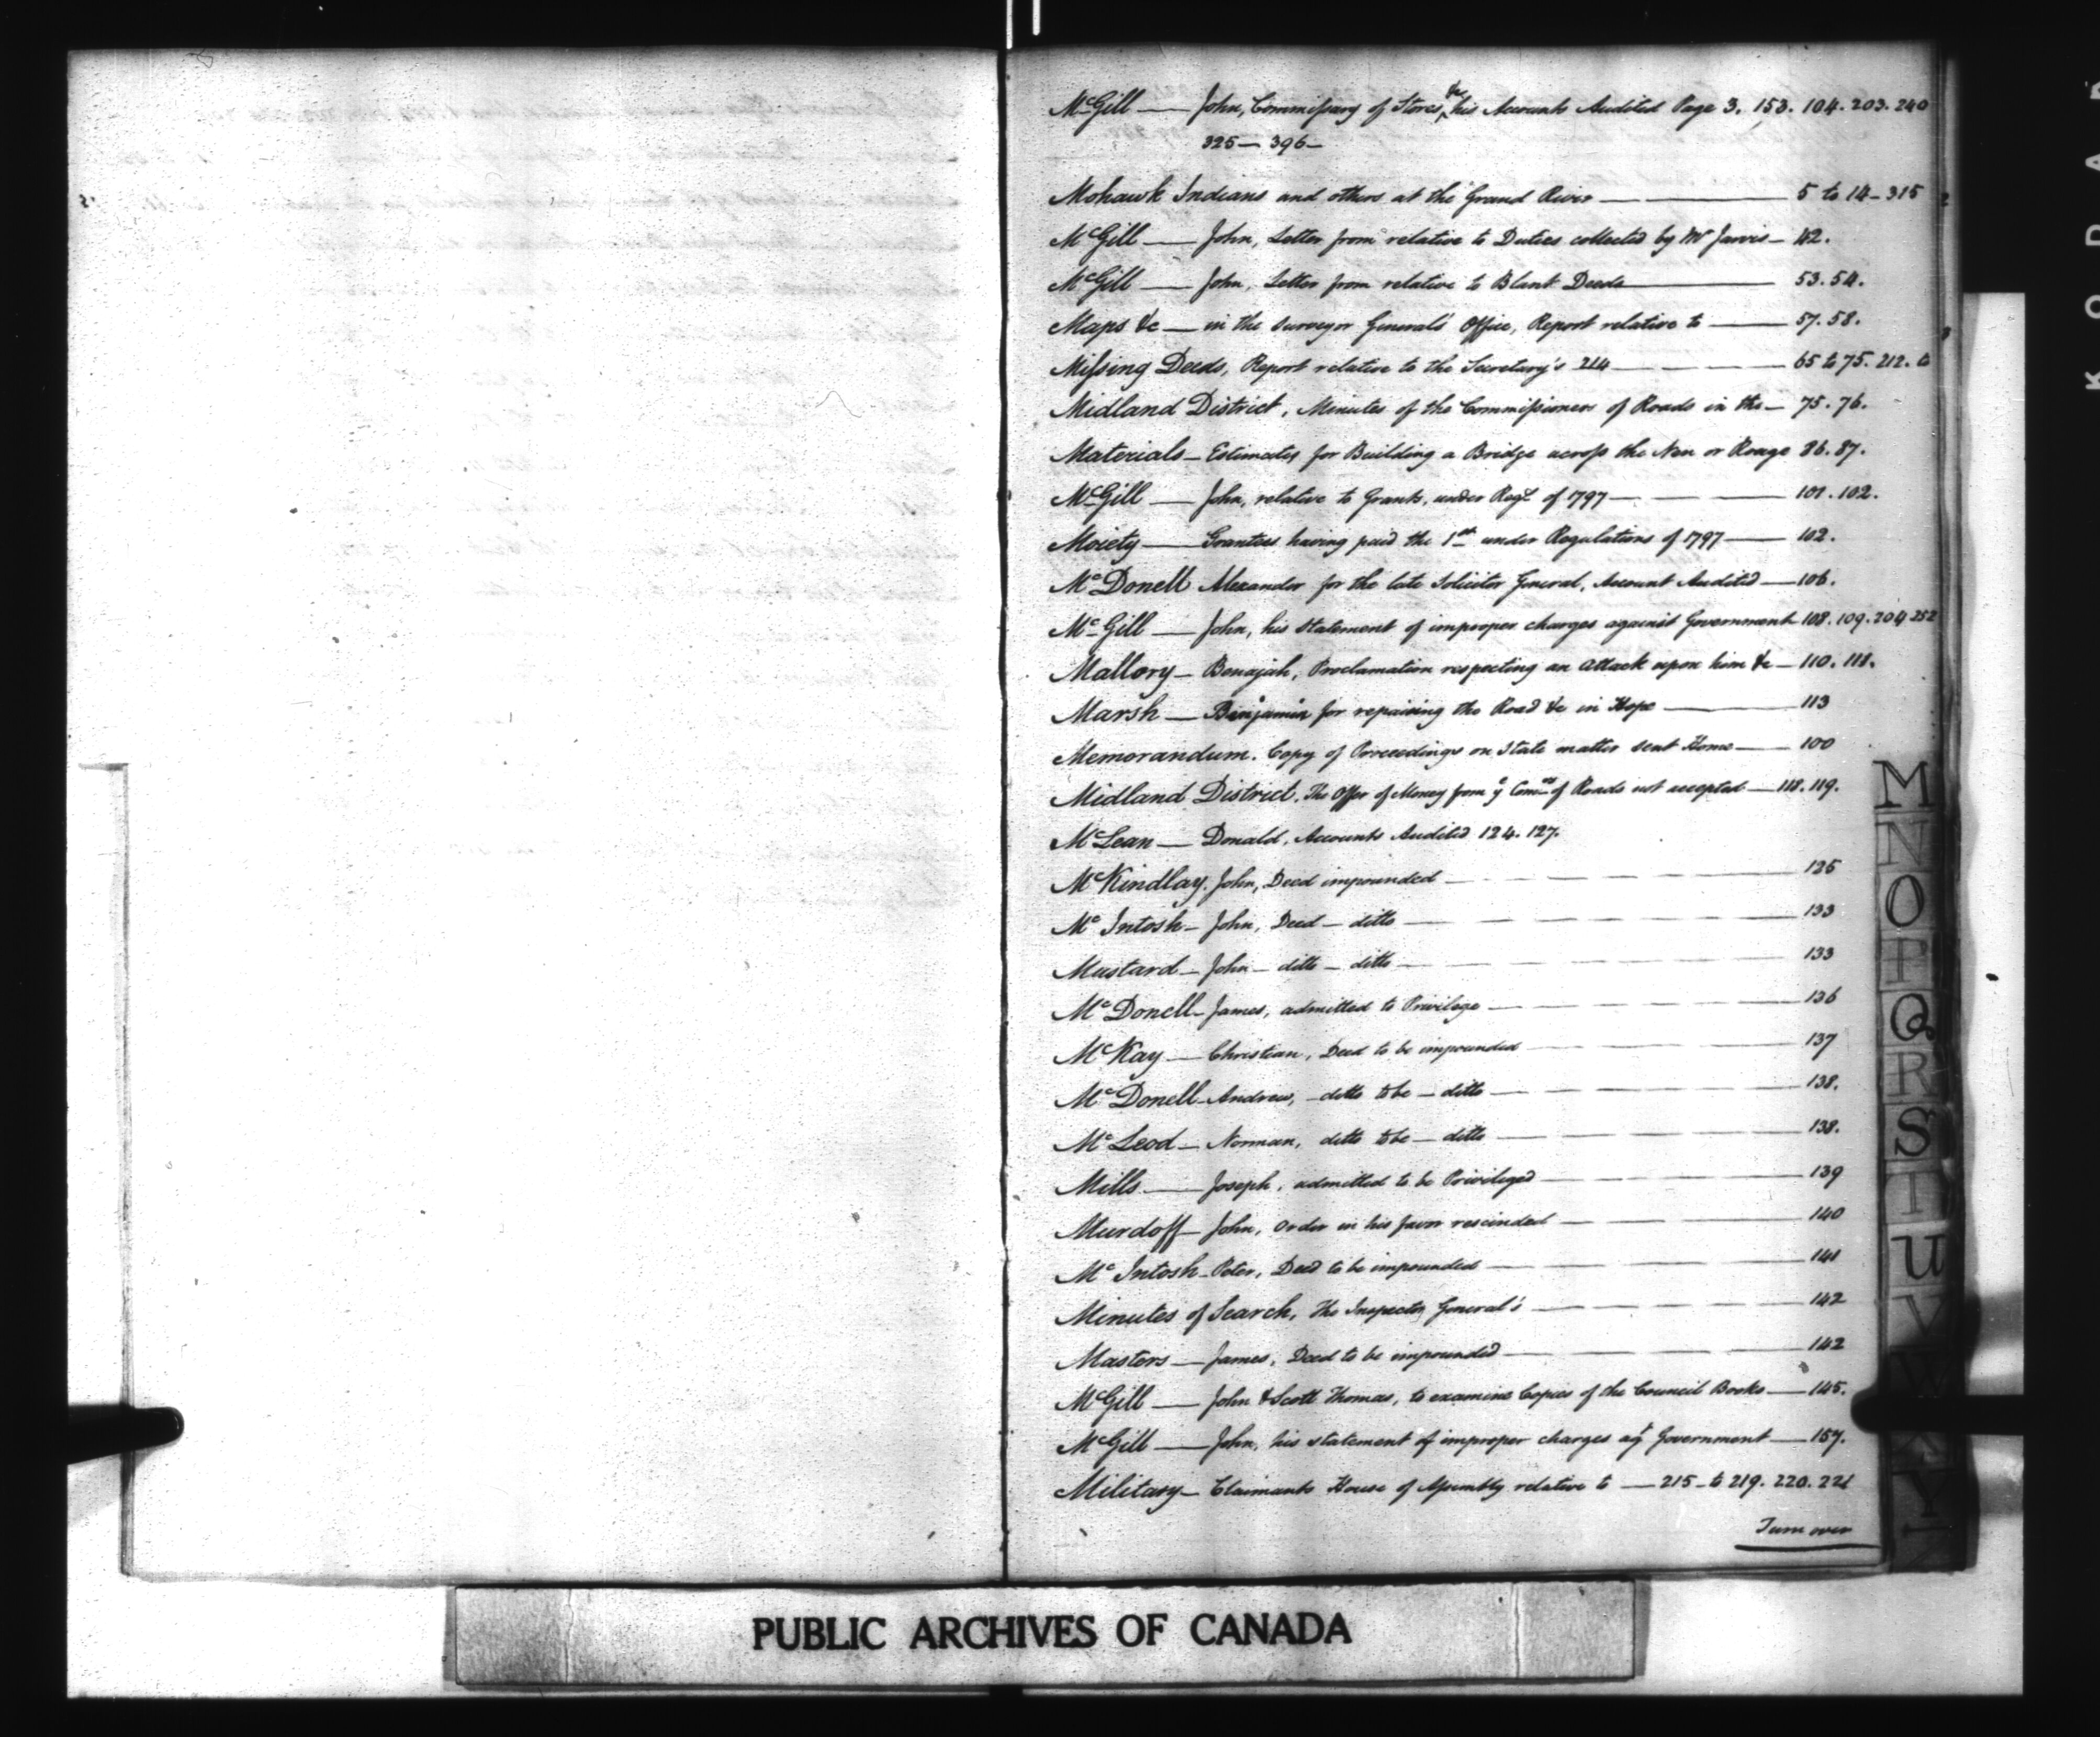 McGill — John, Commissary of Stores, &c his Accounts Audited Page 3. 153. 104. 203. 240
325 — 396 —
Mohawk Indians and others at the Grand River — 5 to 14 — 315
McGill — John, Letter from relative to Duties collected by Mr Jarvis — 42.
McGill — John, Letter from relative to Blank Deeds — 53. 54.
Maps &c — in the Surveyor General's Office, Report relative to — 57. 58.
Missing Deeds, Report relative to the Secretary's 214 — 65 to 75. 212. to
Midland District, Minutes of the Commissioners of Roads in the — 75. 76.
Materials — Estimates for Building a Bridge across the Nen or Rouge 86. 87.
McGill — John, relative to Grants, under Regt of 1797 — 101. 102.
Moiety — Grantees having paid the 1st under Regulations of 1797 — 102.
McDonell Alexander for the late Solicitor General, Account Audited — 106.
McGill — John, his Statement of improper charges against Government 108. 109. 204 252
Mallory — Benajah, Proclamation respecting an Attack upon him &c — 110. 111.
Marsh — Benjamin for repairing the Road &c in Hope — 113
Memorandum. Copy of Proceedings on State matter sent Home — 100
Midland District. The Offer of Money from ye Comrs of Roads not accepted — 118. 119.
McLean — Donald, Accounts Audited 124. 127.
McKindlay, John, Deed impounded — 125
McIntosh — John, Deed — ditto — 133
Mustard — John — ditto — ditto — 133
McDonell — James, admitted to Privilege — 136
McKay — Christian, Deed to be impounded — 137
McDonell — Andrew, — ditto to be — ditto — 138.
McLeod — Norman, ditto to be — ditto — 138.
Mills — Joseph, admitted to be Privileged — 139
Murdoff — John, Order in his favor rescinded — 140
McIntosh — Peter, Deed to be impounded — 141
Minutes of Search, The Inspector General's — 142
Masters — James, Deed to be impounded — 142
McGill — John & Scott Thomas, to examine Copies of the Council Books — 145.
McGill — John, his statement of improper charges agt Government — 157.
Military — Claimants House of Assembly relative to — 215 — to 219. 220. 221
Turn over
M
N
O
P
Q
R
S
T
U
V
W
X
Y
PUBLIC ARCHIVES OF CANADA